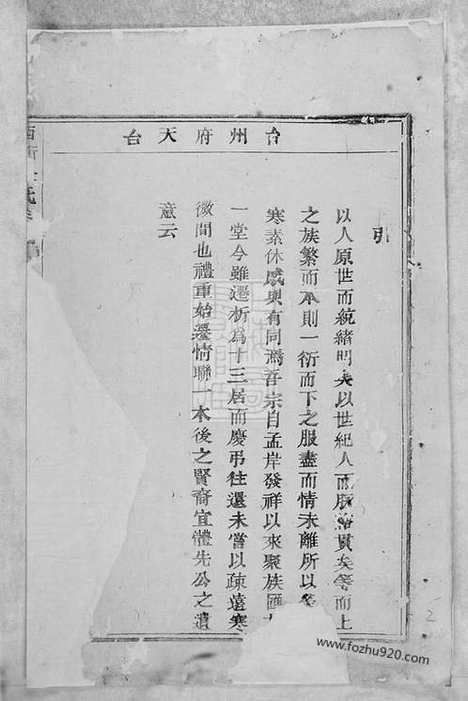 台州府天台
引
以人原世而統緒明矣以世紀人而脈絡貫矣等而上
之族繁而本則一衍而下之服盡而情未離所以
寒素休戚與有同焉吾宗自孟岸發祥以來聚族
一堂今雖遷析為十三居而慶弔往還未嘗以疎遠寒
微間也禮重始遷情聯一本後之賢裔宜體先公之遺
意云
2
www.fozhu920.com